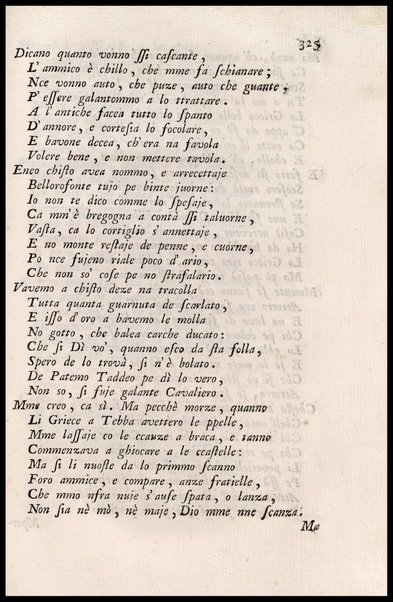 325
Dicano quanto vonno ſſi caſcante,
L' ammico è chillo, che mme fa ſchianare;
Nce vonno auto, che puze, auto che guante;
P' eſſere galantommo a lo ttrattare.
A l' antiche facea tutto lo ſpanto
D' annore, e corteſia lo focolare,
E bavone decea, ch' era na favola
Volere bene, e non mettere tavola.
Eneo chiſto avea nommo, e arrecettaje
Bellorofonte tujo pe binte juorne:
Io non te dico comme lo ſpeſaje,
Ca mm' è bregogna a contà ſſi taluorne,
Vaſta, ca lo cortiglio s' annettaje,
E no monte reſtaje de penne, e cuorne,
Po nce fujeno riale poco d' ario,
Che non so' coſe pe no ſtrafalario.
Vavemo a chiſto deze na tracolla
Tutta quanta guarnuta de ſcarlato,
E iſſo d' oro a bavemo le molla
No gotto, che balea carche ducato:
Che ſi Dì vo', quanno eſco da ſta folla,
Spero de lo trovà, ſi n' è bolato.
De Patemo Taddeo pe dì lo vero,
Non so, ſi fuje galante Cavaliero.
Mme creo, ca sì. Ma pecchè morze, quanno
Li Griece a Tebba avettero le ppelle,
Mme laſſaje co le ccauze a braca, e tanno
Commenzava a ghiocare a le ccaſtelle:
Ma ſi li nuoſte da lo primmo ſcanno
Foro ammice, e compare, anze fratielle,
Che mmo nfra nuje s' auſe ſpata, o lanza,
Non ſia nè mò, nè maje, Dio mme nne ſcanza.
Me